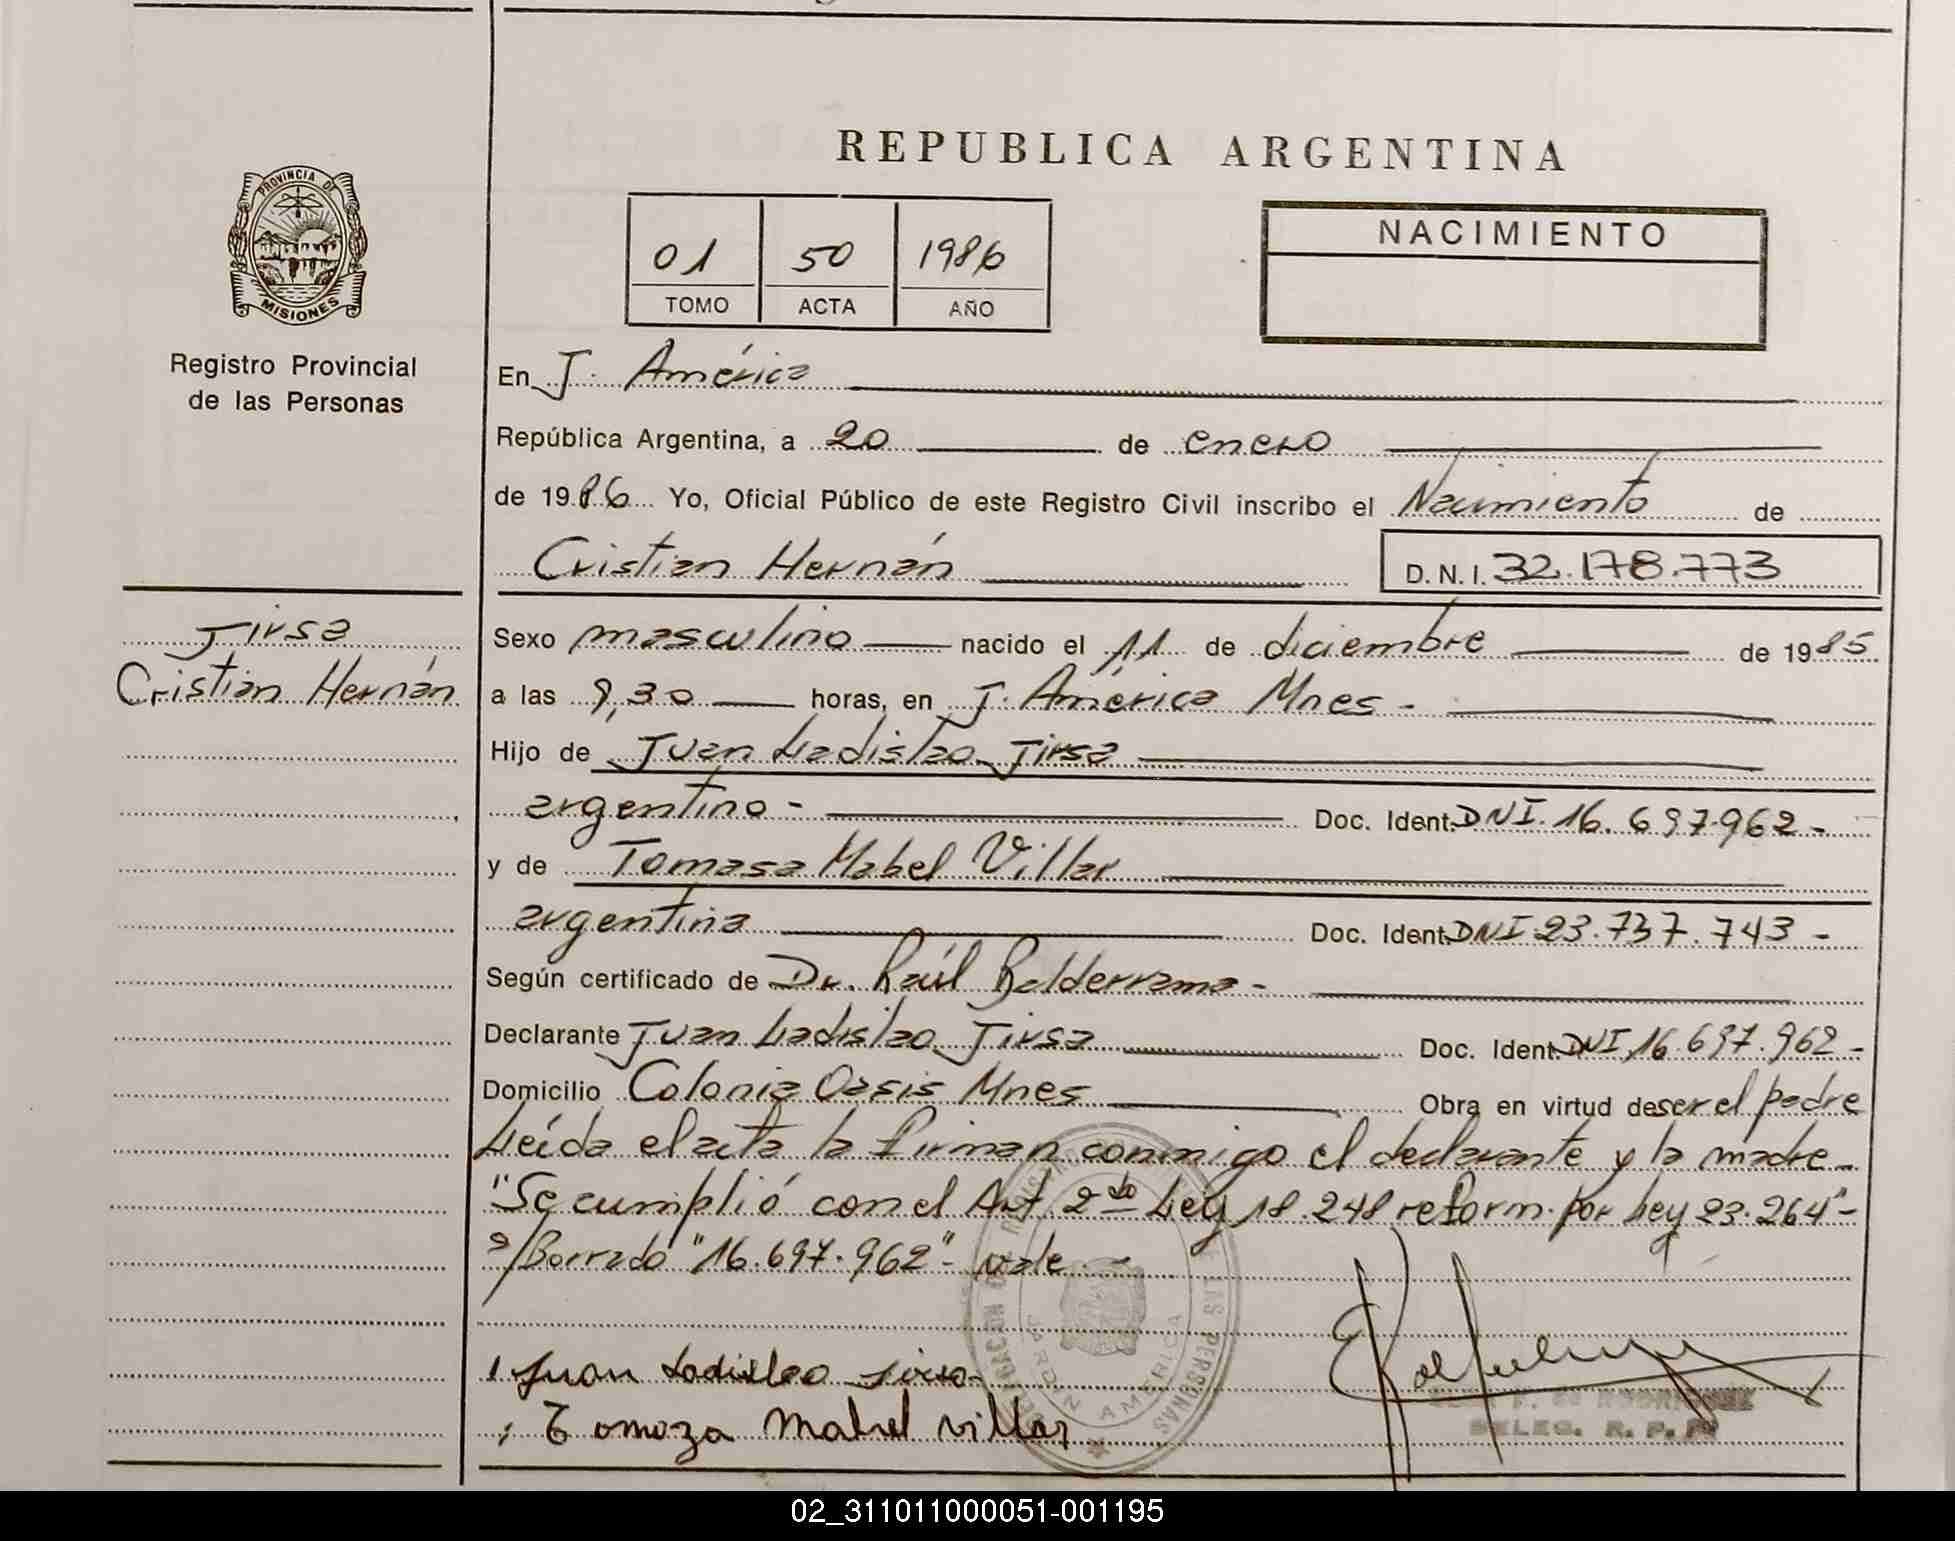 REPUBLICA ARGENTINA
PROVINCIA DE
MISIONES
Registro Provincial
de las Personas
01 50 1986
TOMO ACTA AÑO
NACIMIENTO
En J. América
República Argentina, a 20 de enero
de 1986 Yo, Oficial Público de este Registro Civil inscribo el Nacimiento de
Cristian Hernán D.N.I. 32.178.773
Jirsa
Cristian Hernán
Sexo masculino nacido el 11 de diciembre de 1985
a las 9,30 horas, en J. América Mnes -
Hijo de Juan Ladislao Jirsa
argentino - Doc. Ident. DNI. 16.697.962 -
y de Tomasa Mabel Villar
argentina Doc. Ident. DNI 23.737.743 -
Según certificado de Dr. Raúl Balderrama -
Declarante Juan Ladislao Jirsa Doc. Ident. DNI 16.697.962 -
Domicilio Colonia Oasis Mnes Obra en virtud de ser el padre
Leída el acta la firman conmigo el declarante y la madre -
"Se cumplió con el Art 2do Ley 18.248 reform. por Ley 23.264" -
s/Borrado "16.697.962" - vale -
Juan Ladislao Jirsa
Tomaza Mabel Villar
JARDIN AMERICA
LAS PERSONAS
RODRIGUEZ
DELEG. R. P. P.
02_311011000051-001195